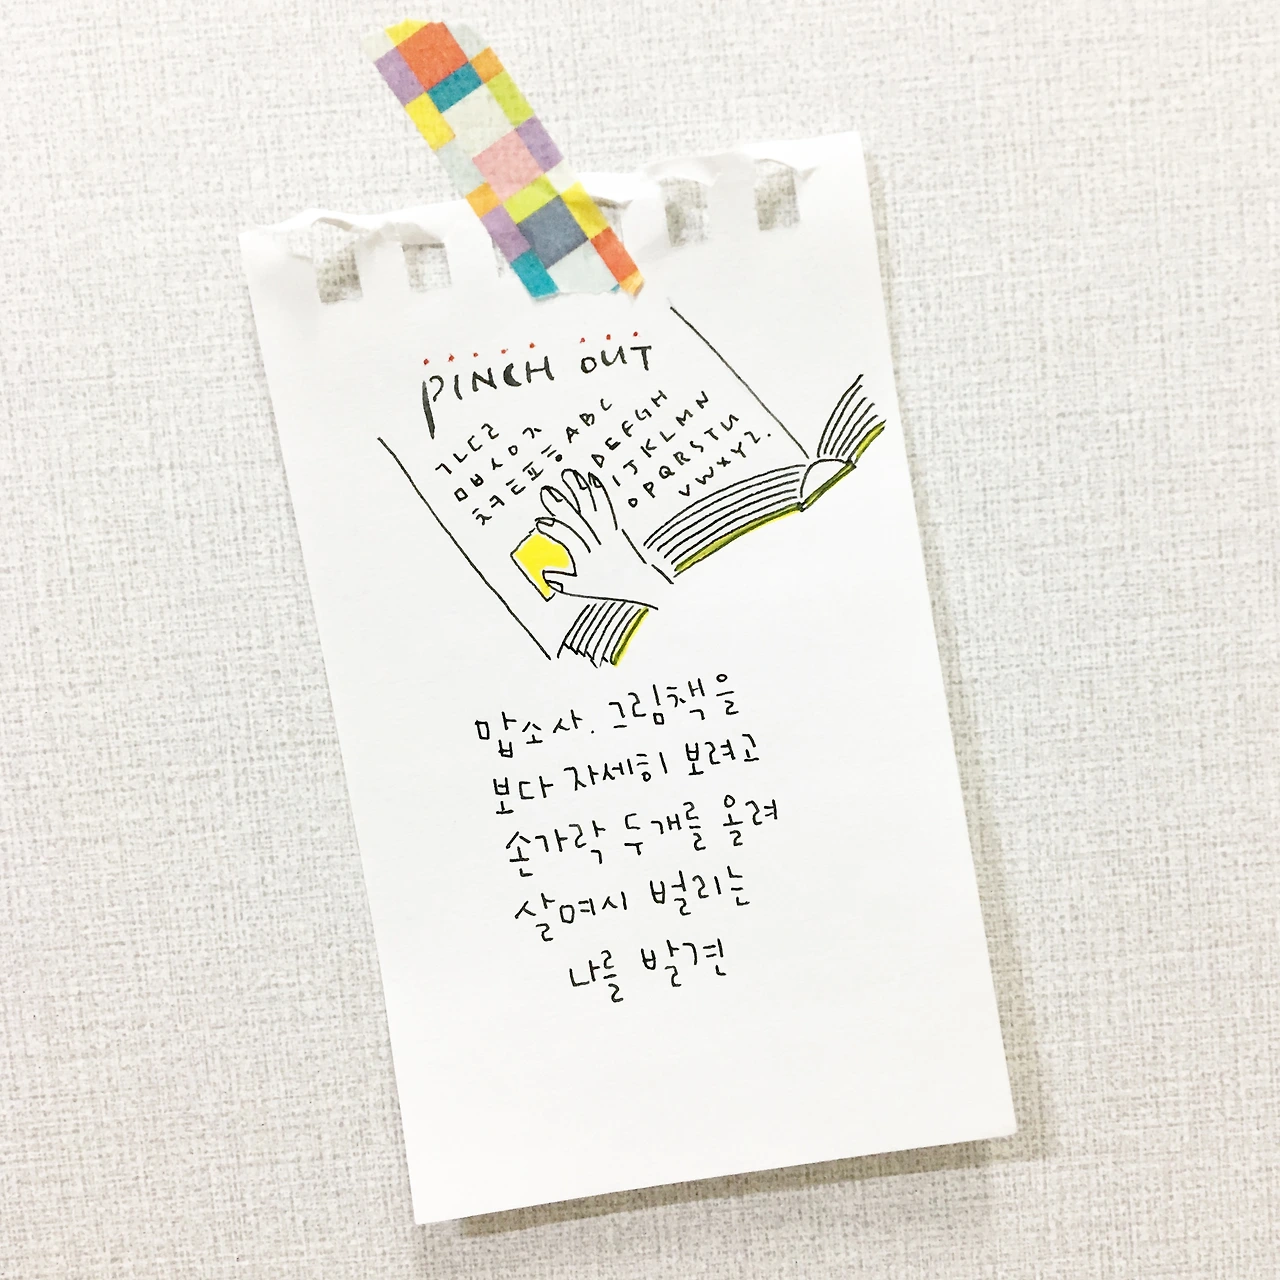 PINCH OUT
ㄱㄴㄷㄹ
ㅁㅂㅅㅇㅈ
ㅊㅋㅌㅍㅎ
ABC
DEFGH
IJKLMN
OPQRSTU
VWXYZ.
맙소사. 그림책을
보다 자세히 보려고
손가락 두개를 올려
살며시 벌리는
나를 발견